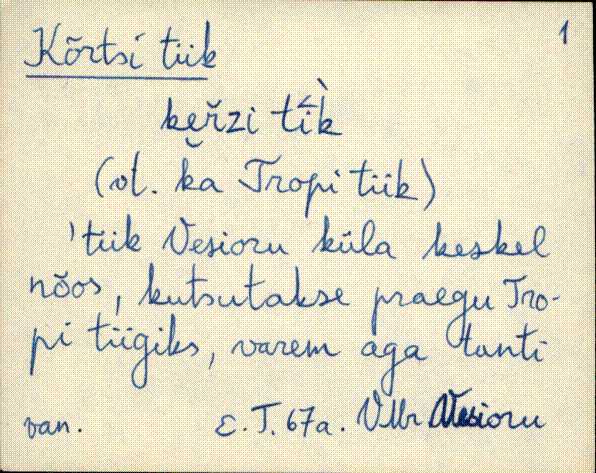 Kõrtsi tiik 1
kẹ̆řzi tík̀
(vt. ka Tropi tiik)
'tiik Vesioru küla keskel
nõos, kutsutakse praegu Tro-
pi tiigiks, varem aga tunti
van. E.T. 67a. VMr Vesioru